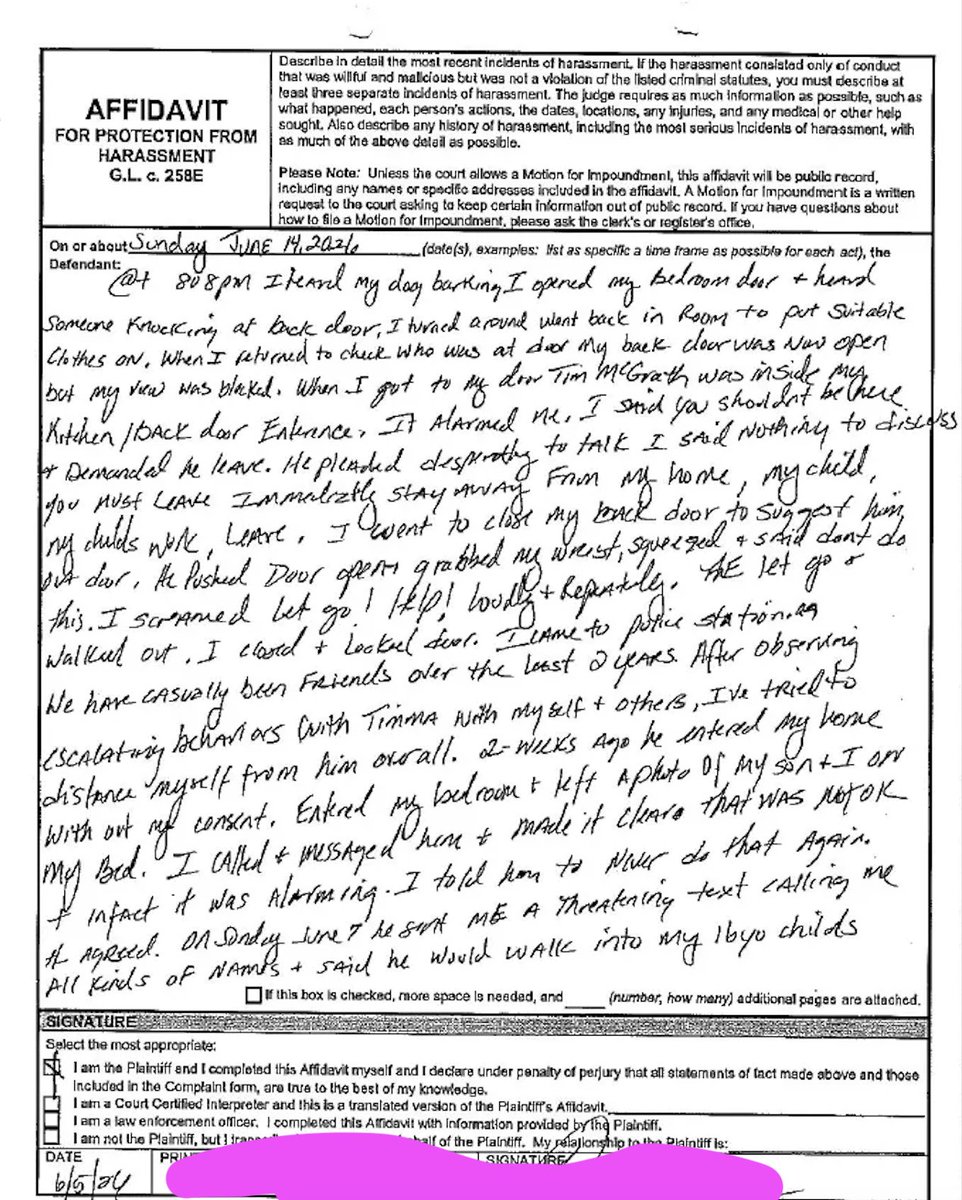 AFFIDAVIT
FOR PROTECTION FROM
HARASSMENT
G.L. c. 258E
Describe in detail the most recent incidents of harassment. If the harassment consisted only of conduct
that was willful and malicious but was not a violation of the listed criminal statutes, you must describe at
least three separate incidents of harassment. The judge requires as much information as possible, such as
what happened, each person's actions, the dates, locations, any injuries, and any medical or other help
sought. Also describe any history of harassment, including the most serious incidents of harassment, with
as much of the above detail as possible.
Please Note: Unless the court allows a Motion for Impoundment, this affidavit will be public record,
including any names or specific addresses included in the affidavit. A Motion for Impoundment is a written
request to the court asking to keep certain information out of public record. If you have questions about
how to file a Motion for Impoundment, please ask the clerk's or register's office.
On or about Sunday JUNE 14, 2026 (date(s), examples: list as specific a time frame as possible for each act), the
Defendant:
@t 808pm I heard my dog barking, I opened my Bedroom door + heard
Someone Knocking at back door, I turned around went back in Room to put Suitable
Clothes on. When I returned to check who was at door my back door was now open
but my view was blocked. When I got to my door Tim McGrath was inside my
Kitchen/Back door Entrance. It Alarmed me. I said you shouldnt be here
+ Demanded he leave. He pleaded desperatly to talk I said Nothing to discuss
You must Leave Immediatly stay away From my home, my child,
my childs work, Leave. I went to close my back door to suggest him
out door. He Pushed Door open + grabbed my wrist, squeezed + said dont do
this. I screamed Let go! Help! Loudly + Repeatedly. He let go +
walked out. I closed + Locked door. I came to police station.
We have casually been Friends over the last 2 years. After observing
escalating behaviors with Tim with myself + others, I've tried to
distance myself from him overall. 2-weeks ago he entered my home
with out my consent. Entered my bedroom + left a photo of my son + I on
my Bed. I called + messaged him + made it clear that was not OK
+ infact it was Alarming. I told him to Never do that Again.
He Agreed. On Sunday June 7 he sent me a threatening text calling me
All kinds of names + said he would walk into my 16yo childs
If this box is checked, more space is needed, and (number, how many) additional pages are attached.
SIGNATURE
Select the most appropriate:
I am the Plaintiff and I completed this Affidavit myself and I declare under penalty of perjury that all statements of fact made above and those
included in the Complaint form, are true to the best of my knowledge.
I am a Court Certified Interpreter and this is a translated version of the Plaintiff's Affidavit.
I am a law enforcement officer. I completed this Affidavit with information provided by the Plaintiff.
I am not the Plaintiff, but I half of the Plaintiff. My relationship to the Plaintiff is:
DATE
SIGNATURE